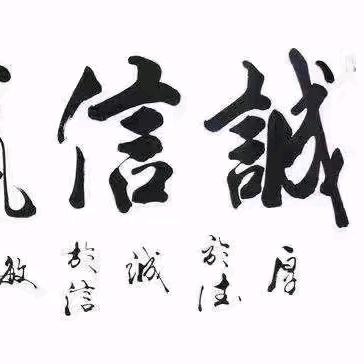 誠信
厚於德誠於信敏